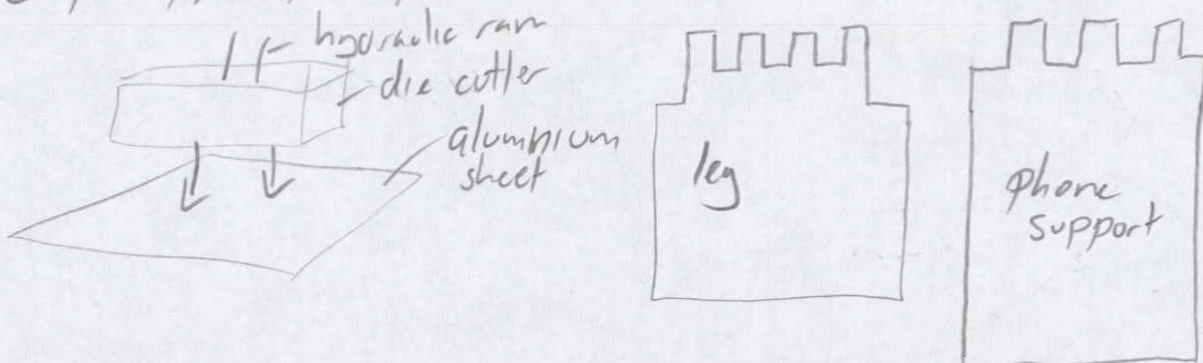 hydraulic ram
die cutter
aluminium
sheet
leg
phone
support